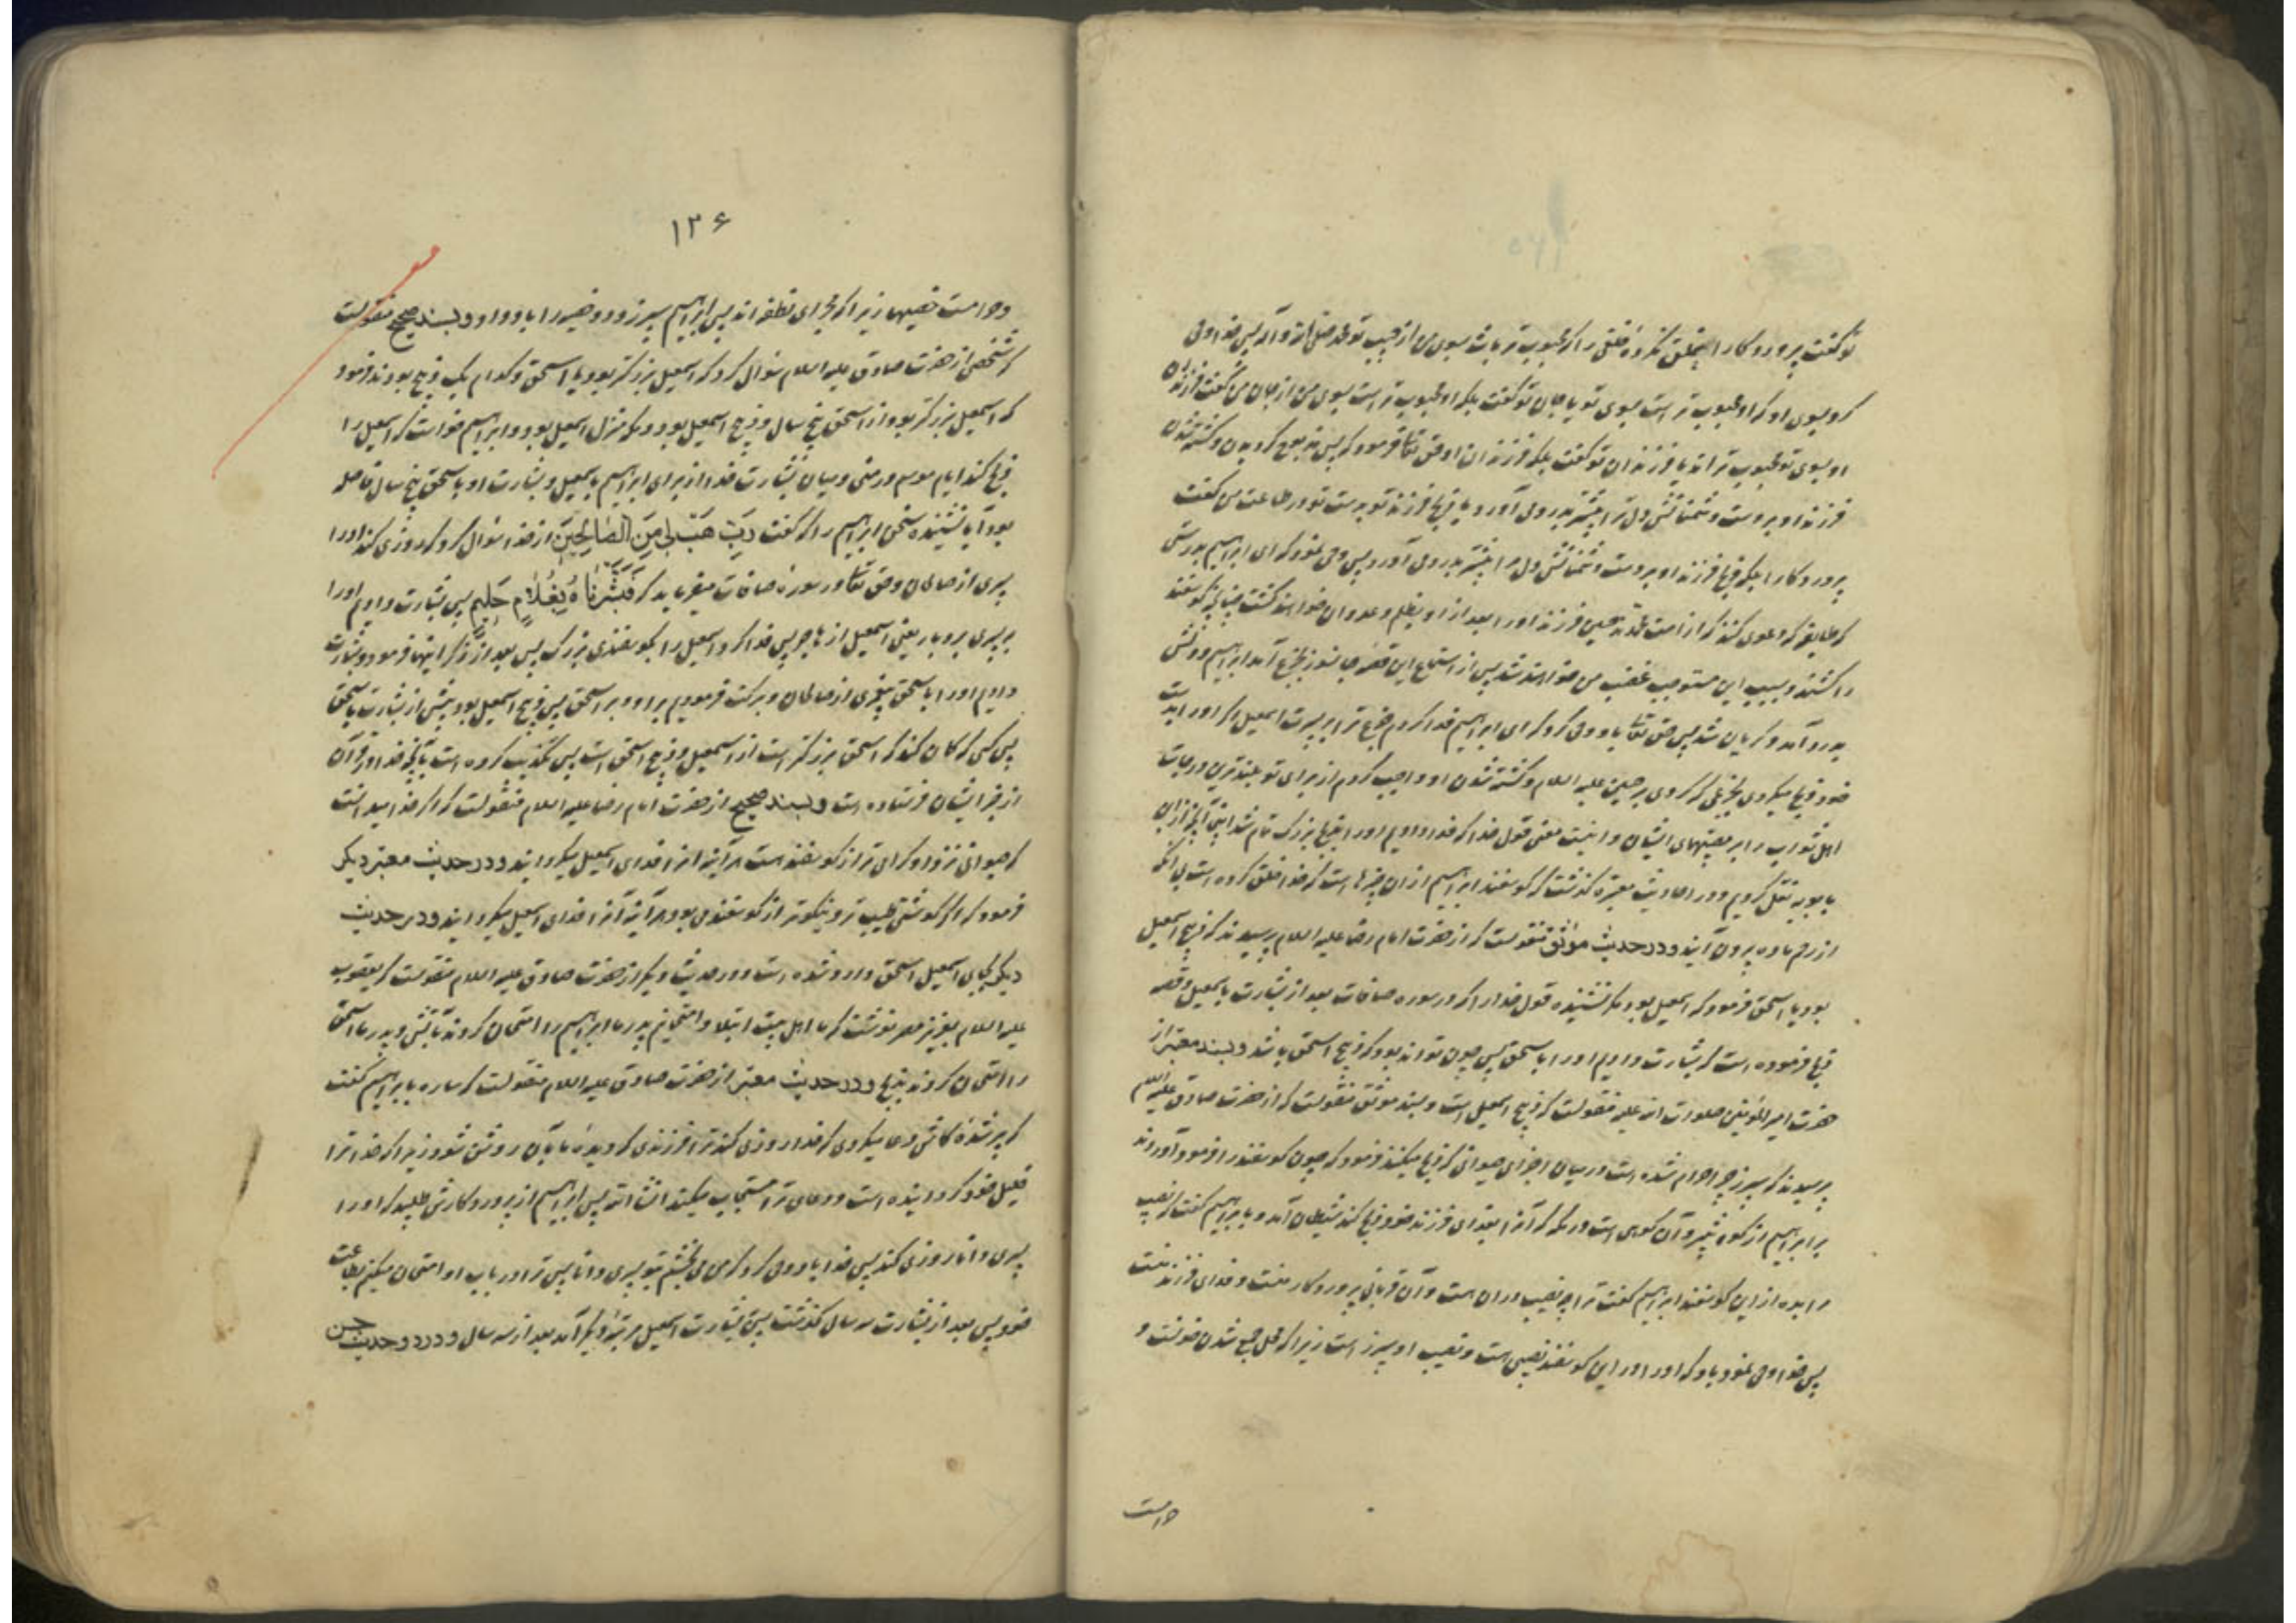 تو گفت پروردگارا خلق نکرده خلقی را که محبوب‌تر باشد بسوی من از حبیب تو محمد صلی الله و آله پس خدا وحی
کرد بسوی او که او محبوب‌تر است بسوی تو یا جان تو گفت بلکه او محبوب‌تر است بسوی من از جان من گفت فرزندان
او بسوی تو محبوب‌تراند یا فرزندان تو گفت بلکه فرزندان او حق تعالی فرمود که پس مذبوح گردیدن و کشته شدن
فرزند او بر دست دشمنانش دل ترا بیشتر بدرد می آورد یا ذبح فرزند تو بدست تو در طاعت من گفت
پروردگارا بلکه ذبح فرزند او بر دست دشمنانش دل مرا بیشتر بدرد می آورد پس وحی نمود که ای ابراهیم بدرستی
که طایفه که دعوی کنند که از امت محمدند حسین فرزند او را بعد از او بظلم و عدوان خواهند کشت چنانچه گوسفند
را کشند و بسبب این مستوجب غضب من خواهند شد پس از استماع این قصه جانسوز بجزع آمد ابراهیم و دلش
بدرد آمد و گریان شد پس حق تعالی باو وحی کرد که ای ابراهیم فدا کردم جزع ترا بر پسرت اسمعیل اگر او را بدست
خود ذبح میکردی بجزعی که کردی بر حسین علیه السلام و کشته شدن او و واجب کردم از برای تو بلندترین درجات
اهل ثواب را بر مصیبتهای ایشان و اینست معنی قول خدا که فدا دادیم او را بذبح بزرگ تمام شد این آنچه از ابن
بابویه نقل کردیم و در احادیث معتبره گذشت که گوسفند ابراهیم از ان چیزها است که خدا خلق کرده است بی آنکه
از رحم ماده بیرون آیند و در حدیث موثق منقولست که از حضرت امام رضا علیه السلام پرسیدند که ذبیح اسمعیل
بود یا اسحق فرمود که اسمعیل بود مگر نشنیده قول خدا را که در سوره صافات بعد از بشارت باسمعیل و قصه
ذبح فرموده است که بشارت دادیم او را باسحق پس چون تواند بود که ذبیح اسحق باشد و بسند معتبر از
حضرت امیر المؤمنین صلوات الله علیه منقولست که ذبیح اسمعیل است و بسند موثق منقولست که از حضرت صادق علیه السلام
پرسیدند که سپرز چرا حرام شده است در میان اجزای حیوانی که ذبح میکنند فرمود که چون گوسفند را فرود آوردند
بر ابراهیم از کوه ثبیر و آن کوهی است در مکه که آنرا بفدای فرزند خود ذبح کند شیطان آمد و بابراهیم گفت که نصیب
مرا بده از این گوسفند ابراهیم گفت ترا چه نصیب در ان هست و آن قربانی پروردگار منست و فدای فرزند منست
پس خدا وحی نمود باو که او را در این گوسفند نصیبی است و نصیب او سپرز است زیرا که محل جمع شدن خونست و
حرامست
۱۳۶
و حرامست خصیها زیرا که مجرای نطفه اند پس ابراهیم سپرز و دو خصیه را باو داد و بسند صحیح منقولست
که شخصی از حضرت صادق علیه السلام سؤال کرد که اسمعیل بزرگتر بود یا اسحق و کدام یک ذبیح بودند فرمود
که اسمعیل بزرگتر بود از اسحق پنج سال و ذبیح اسمعیل بود و مکه منزل اسمعیل بود و ابراهیم خواست که اسمعیل را
ذبح کند ایام موسم در منی و میان بشارت خدا از برای ابراهیم باسمعیل و بشارت او باسحق پنج سال فاصله
بود آیا نشنیده سخن ابراهیم را که گفت رَبِّ هَبْ لِی مِنَ الصَّالِحِینَ از خدا سؤال کرد که روزی کند او را
پسری از صالحان و حق تعالی در سوره صافات میفرماید که فَبَشَّرْنَاهُ بِغُلَامٍ حَلِیمٍ پس بشارت دادیم او را
بپسری بردبار یعنی اسمعیل از هاجر پس فدا کرد اسمعیل را بگوسفندی بزرگ پس بعد از ذکر اینها فرمود و بشارت
دادیم او را باسحق پیغمبری از صالحان و برکت فرمودیم بر او و بر اسحق پس ذبیح اسمعیل بود پیش از بشارت باسحق
پس کسی که گمان کند که اسحق بزرگتر است از اسمعیل و ذبیح اسحق است پس تکذیب کرده است بآنچه خدا در قرآن
از خبر ایشان فرستاده است و بسند صحیح از حضرت امام رضا علیه السلام منقولست که اگر خدا میدانست
که حیوانی نزد او گرامی تر از گوسفند هست هر آینه انرا فدای اسمعیل میگردانید و در حدیث معتبر دیگر
فرمود که اگر گوشتی طیب تر و نیکوتر از گوسفند می بود هر آینه آنرا فدای اسمعیل میگردانید و در حدیث
دیگر بجای اسمعیل اسحق وارد شده است و در حدیث دیگر از حضرت صادق علیه السلام منقولست که یعقوب
علیه السلام بعزیز مصر نوشت که ما اهل بیت ابتلا و امتحانیم پدر ما ابراهیم را امتحان کردند بآتش و پدر ما اسحق
را امتحان کردند بذبح و در حدیث معتبر از حضرت صادق علیه السلام منقولست که ساره بابراهیم گفت
که پیر شدهٔ کاش دعا میکردی که خدا روزی کند ترا فرزندی که دیدهٔ ما بآن روشن شود زیرا که خدا ترا
خلیل خود گردانیده است و دعای ترا مستجاب میکند انشاء الله پس ابراهیم از پروردگارش طلبید که او را
پسری دانا روزی کند پس خدا باو وحی کرد که من می بخشم بتو پسری دانا پس ترا در باب او امتحان میکنم بطاعت
خود پس بعد از بشارت سه سال گذشت پس بشارت اسمعیل مرتبهٔ دیگر آمد بعد از سه سال و در دو حدیث حسن